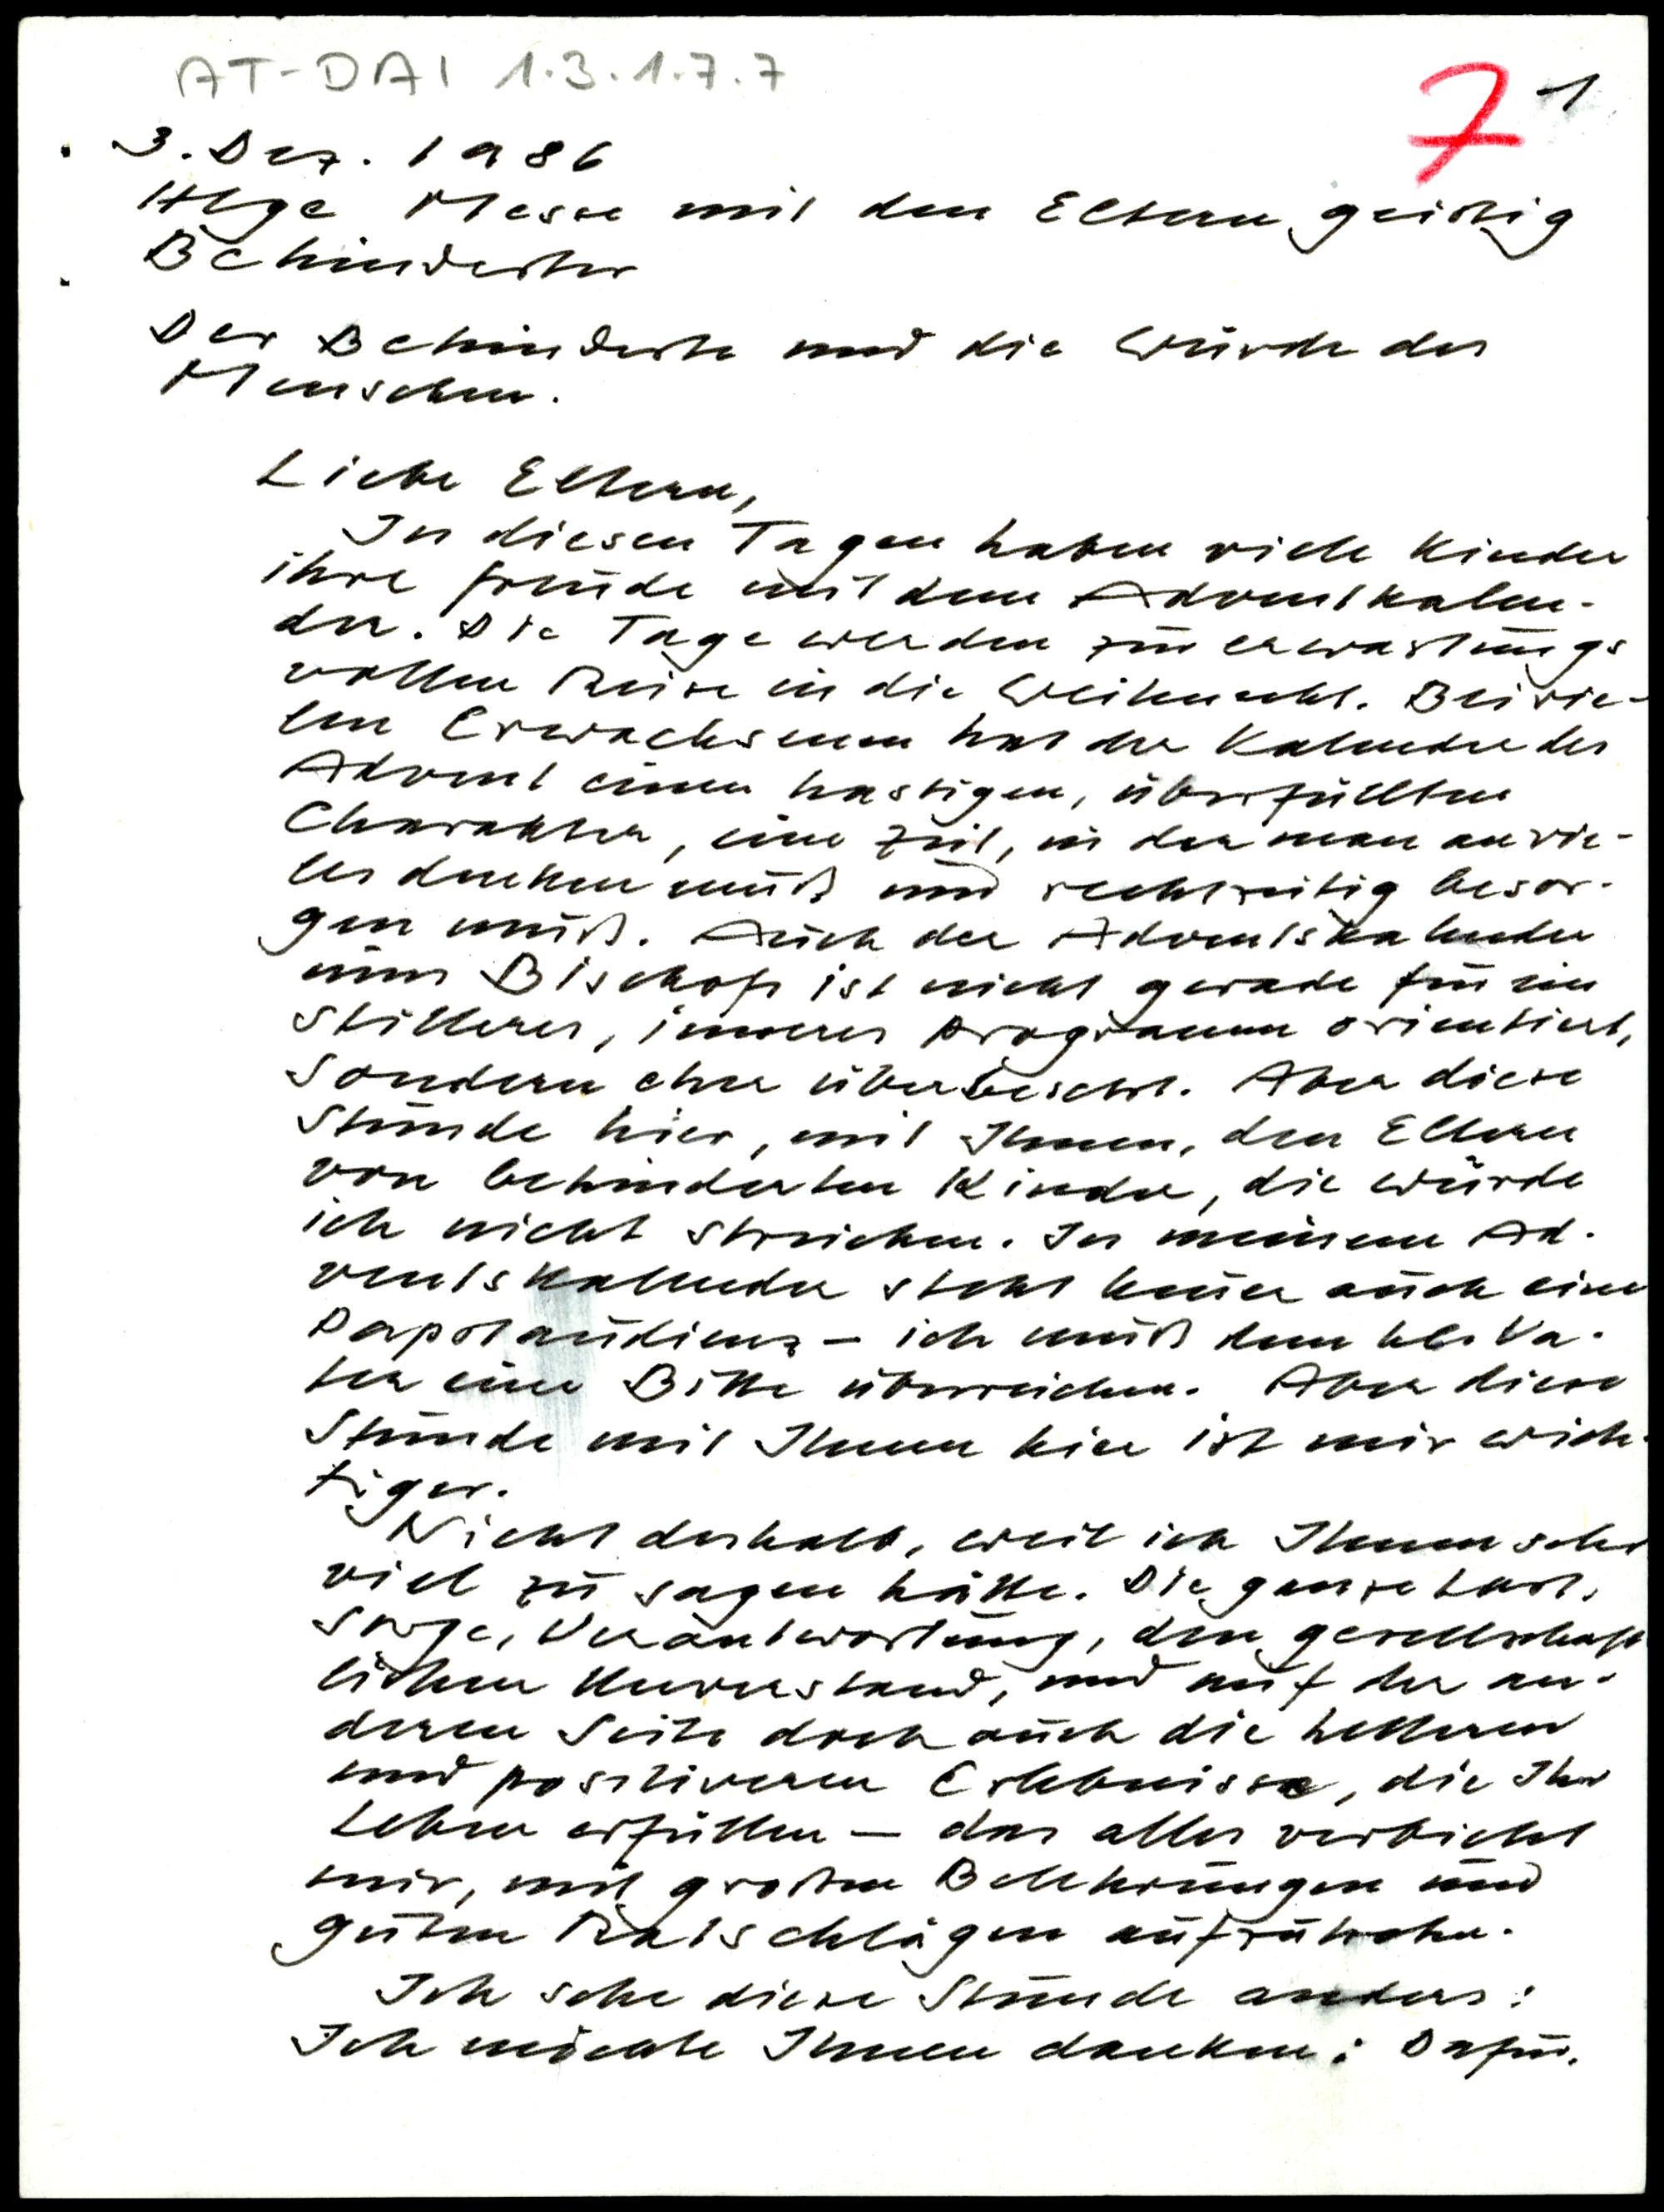 AT-DAI 1.3.1.7.7
7 1
3. Dez. 1986
Hlge Messe mit den Eltern geistig
Behinderter
Der Behinderte und die Würde des
Menschen.
Liebe Eltern,
In diesen Tagen haben viele Kinder
ihre Freude mit dem Adventkalen-
der. Die Tage werden zur erwartungs
vollen Reise in die Weihnacht. Bei vie-
len Erwachsenen hat der Kalender des
Advent einen hastigen, überfüllten
Charakter, eine Zeit, in der man an vie-
les denken muß und rechtzeitig besor-
gen muß. Auch der Adventskalender
eines Bischofs ist nicht gerade für ein
stilleres, inneres Programm orientiert,
sondern eher überbesetzt. Aber diese
Stunde hier, mit Ihnen, den Eltern
von behinderten Kinder, die würde
ich nicht streichen. In meinem Ad-
ventskalender steht heuer auch eine
Papstaudienz – ich muß dem hl. Va-
ter eine Bitte überreichen. Aber diese
Stunde mit Ihnen hier ist mir wich-
tiger.
Nicht deshalb, weil ich Ihnen sehr
viel zu sagen hätte. Die ganze Last,
Sorge, Verantwortung, den gesellschaft
lichen Unverstand, und auf der an-
deren Seite doch auch die helleren
und positiveren Erlebnisse, die Ihr
Leben erfüllen – das alles verbietet
mir, mit großen Belehrungen und
guten Ratschlägen aufzuwarten.
Ich sehe diese Stunde anders:
Ich möchte Ihnen danken: Dafür,